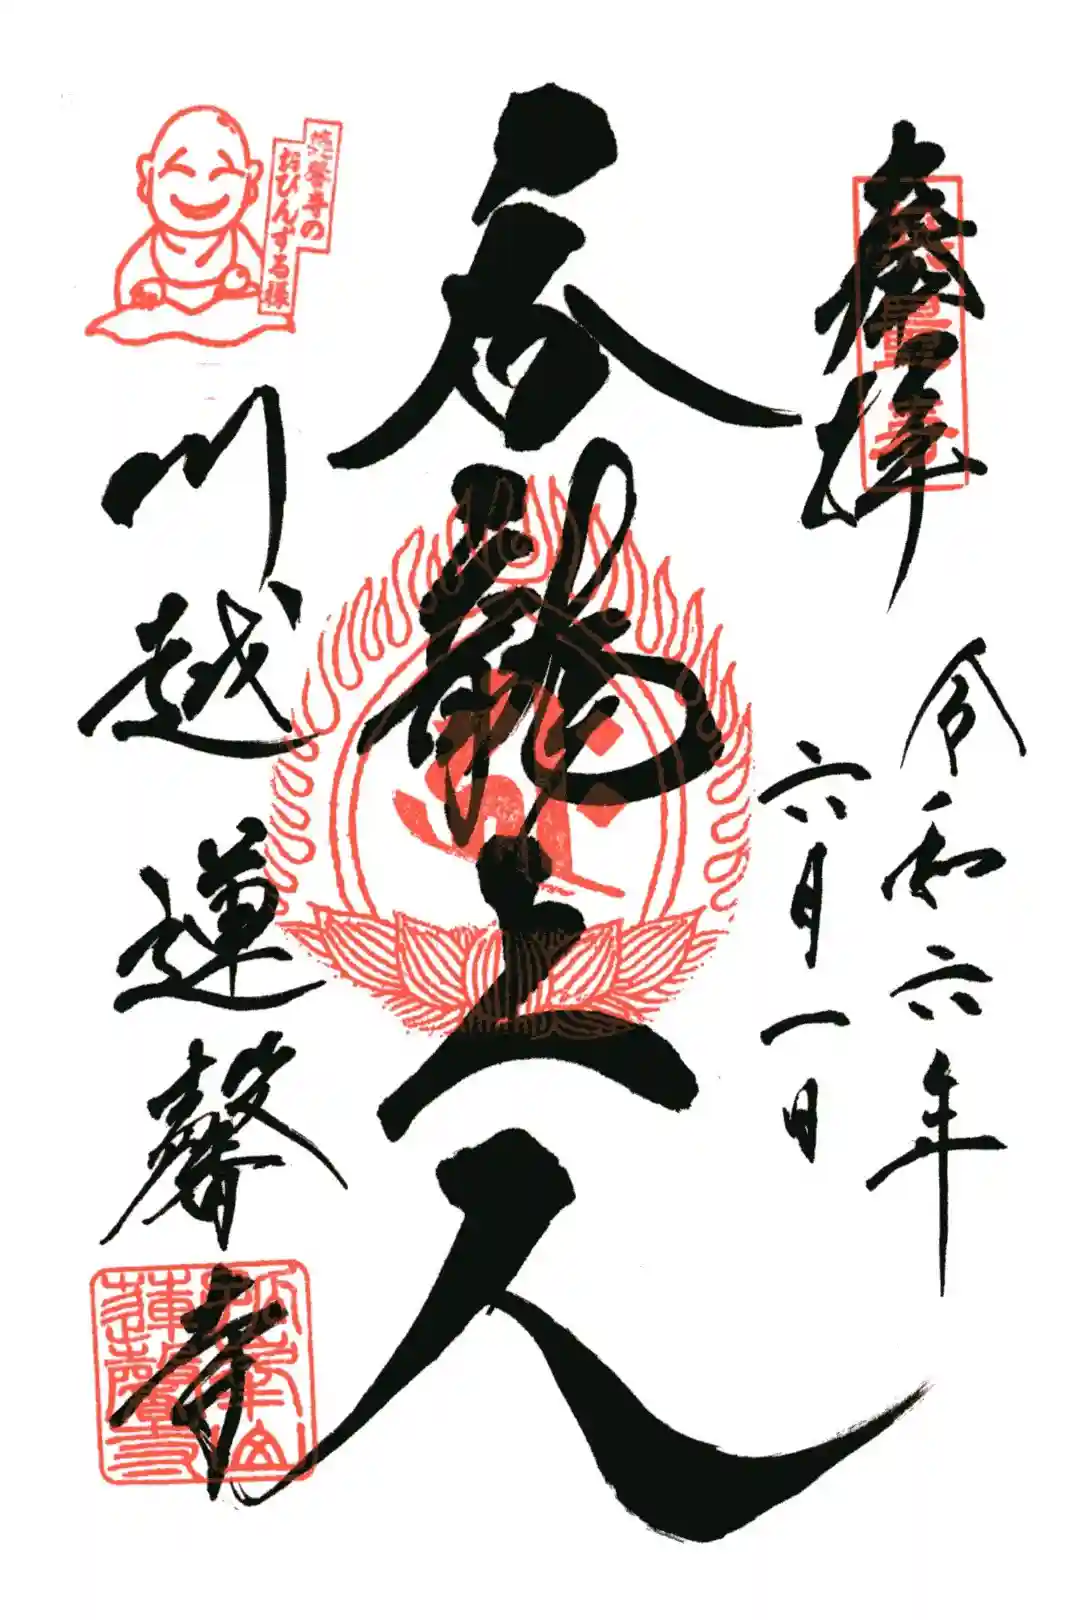 奉拝
令和六年
六月一日
呑龍上人
蓮馨寺の
おびんずる様
川越
蓮馨寺